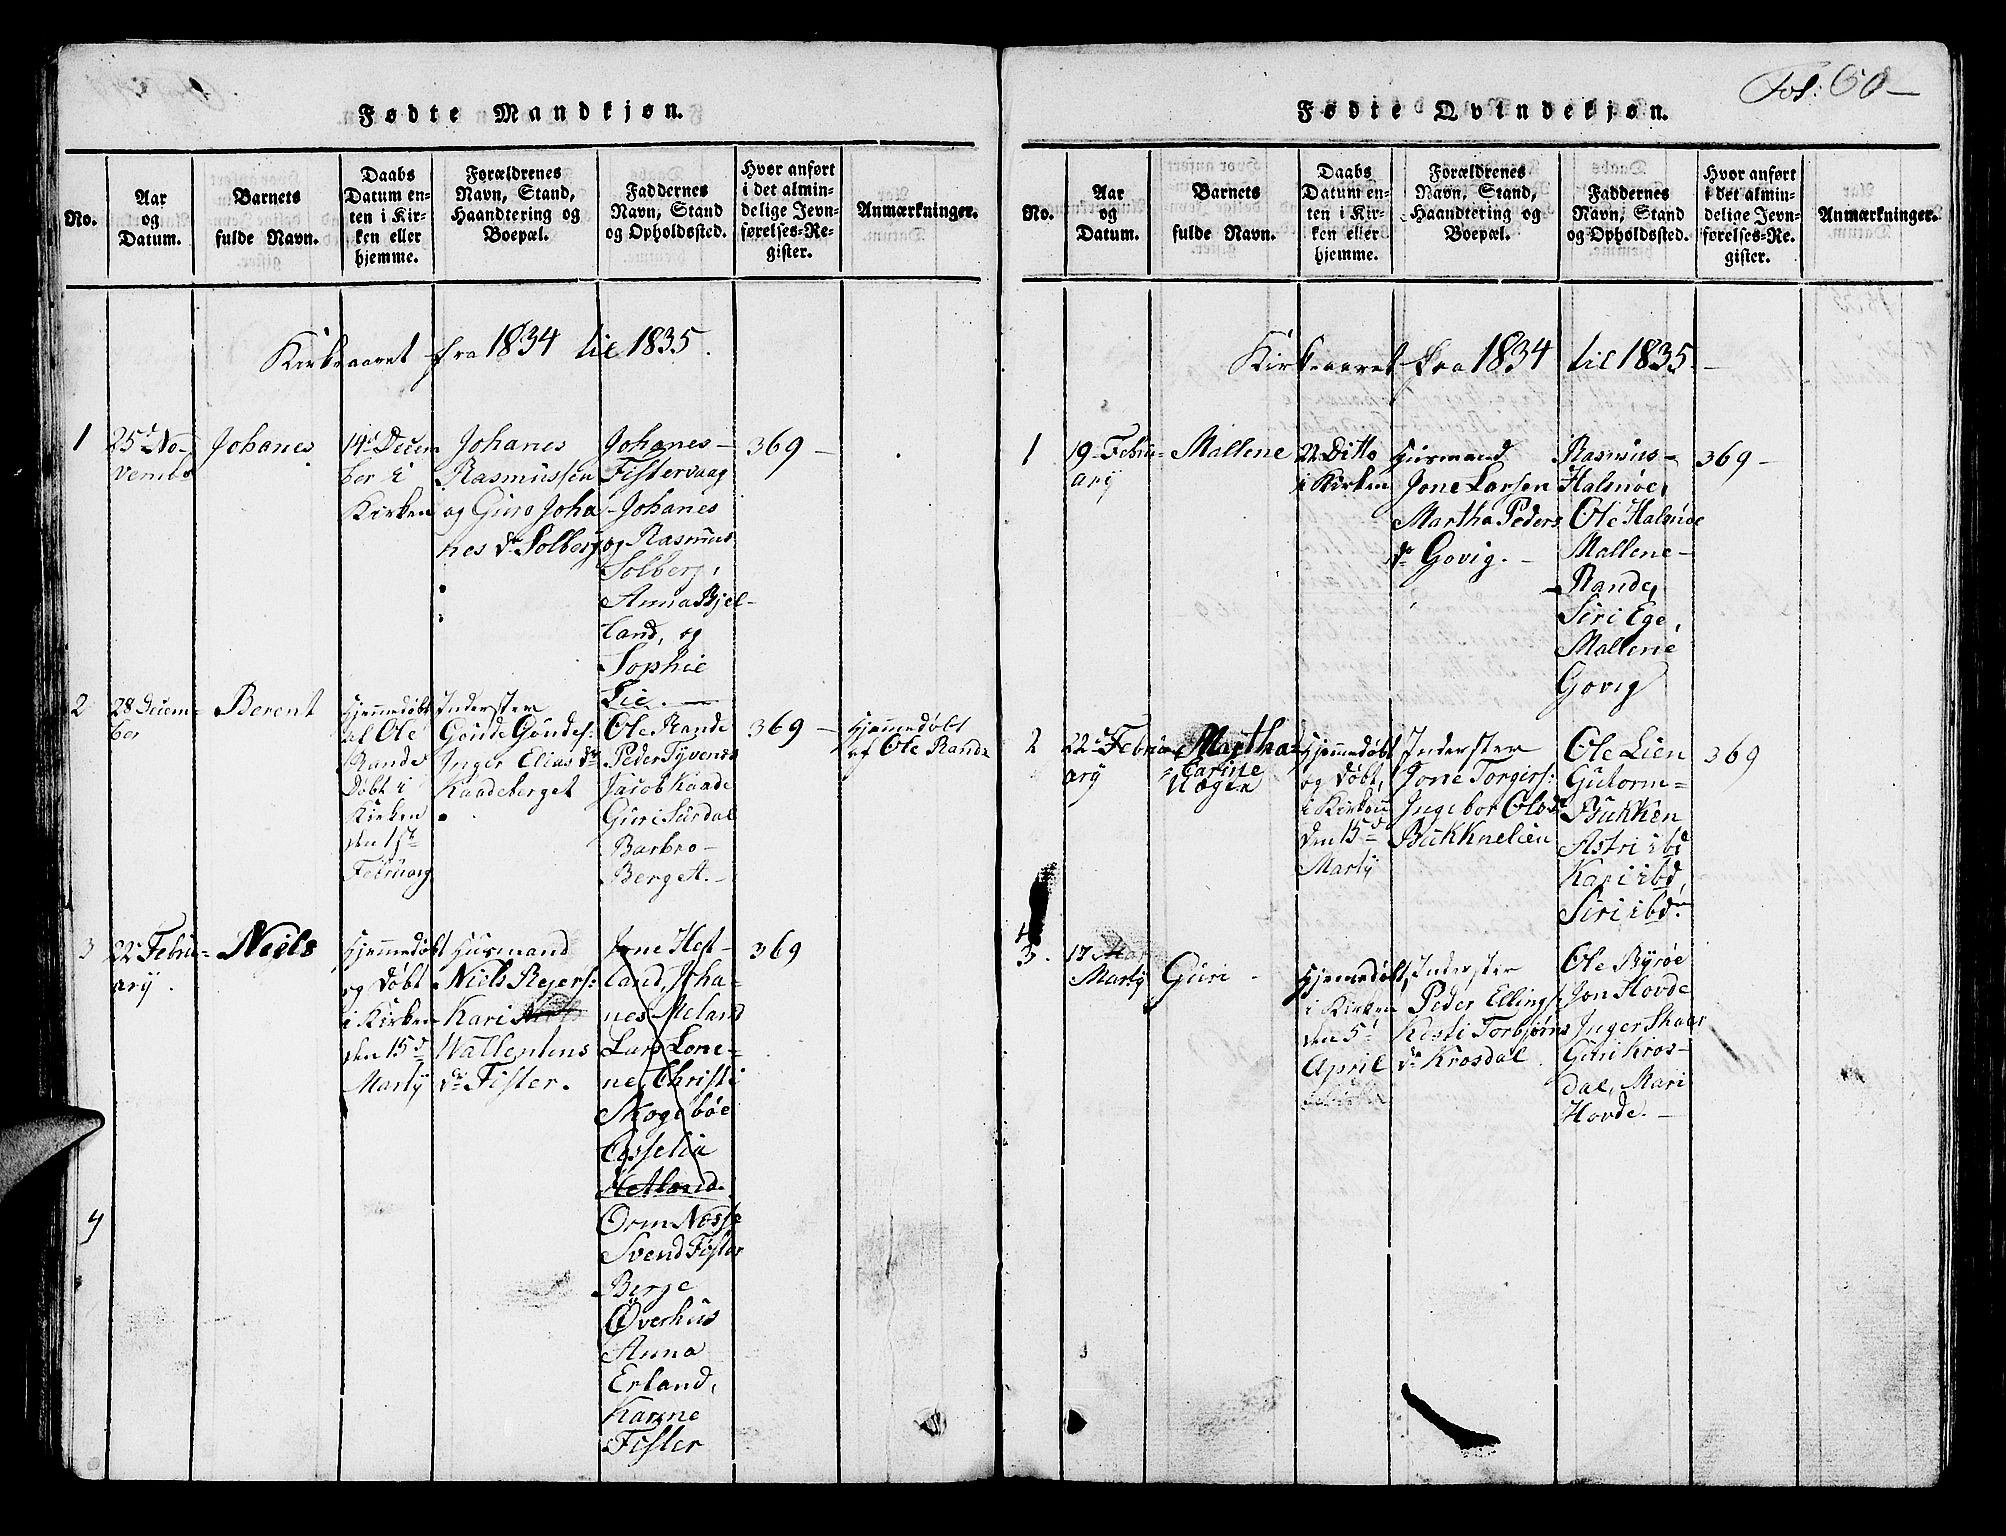 Fol: 60 –
Fødte Mandkjøn.
No.
Aar
og
Datum.
Barnets
fulde Navn.
Daabs
Datum en-
ten i Kir-
ken eller
hjemme.
Forældrenes
Navn, Stand,
Haandtering og
Boepæl.
Faddernes
Navn, Stand
og Opholdssted.
Hvor anført
i det almin-
delige Jevn-
førelses-Re-
gister.
Anmærkninger.
Kirkeaaret fra 1834 til 1835.
1
25d No-
vembr
Johanes
14d Decem
ber i
Kirken
Johanes
Rasmussen
og Guro Joha
nes dr Solberg
Johanes –
Fistervaag
Johanes
og Rasmus
Solberg,
Anna Bjel-
land, og
Sophie
Lie. –
369 –
2
28 Decem-
ber
Berent
Hjemmedøbt
af Ole
Rande
Døbt i
Kirken
den 1ste
Februarij
Inderster
Gunde Gundes:
Inger Elias dr
Kaadeberget
Ole Rande
Peder Tyvenes
Jacob Kaade
Guri Surdal
Barbro –
Berget. –
369 –
Hjemmedøbt
af Ole Rande
3
22 Febru-
arij.
Niels
Hjemmedøbt
og Døbt
i Kirken
den 15d
Martij
Husmand
Niels Rejers:
Kari
Wallentins
dr Fister.
Jone Het-
land, Joha-
nes Meland
Lars Lone-
ne, Christi
Skogebøe
Asselia
Hetland.
Orm Nesse
Svend Fister
Berge
Øverhus
Anna
Erland,
Karine
Fister
369
4
Fødte Qvindekjøn.
No.
Aar
og
Datum.
Barnets
fulde Navn.
Daabs
Datum en-
ten i Kir-
ken eller
hjemme.
Forældrenes
Navn, Stand,
Haandtering og
Boepæl.
Faddernes
Navn, Stand
og Opholdssted.
Hvor anført
i det almin-
delige Jevn-
førelses-Re-
gister.
Anmærkninger.
Kirkeaaret fra 1834 til 1835. –
1
19 Febru-
arij
Mallene
22 Ditto
i Kirken
Husmand
Jone Larsen
Martha Peders
dr Govig. –
Rasmus –
Halsnøe,
Ole Halsnøe
Mallene –
Rande,
Siri Ege,
Mallene
Govig
369 –
2
22 Febru-
arij
Martha
Carine
Hjemmedøbt
og døbt,
i Kirken
den 15d
Martij
Inderster
Jone Torgirs:
Ingebor Ols dr
Bukknelien
Ole Lien
Gutorm –
Bukken
Astri ibd
Kari ibd,
Siri ibd.
369
4
3.
17
Martij
Guri –
Hjemmedøbt,
i Kirken
den 5d
April
Inderster
Peder Ellings:
Kesti Torbjørns
dr Krosdal
Ole Byrøe
Jon Hovde
Inger Skaar
Guri Kros-
dal, Mari
Hovde. –